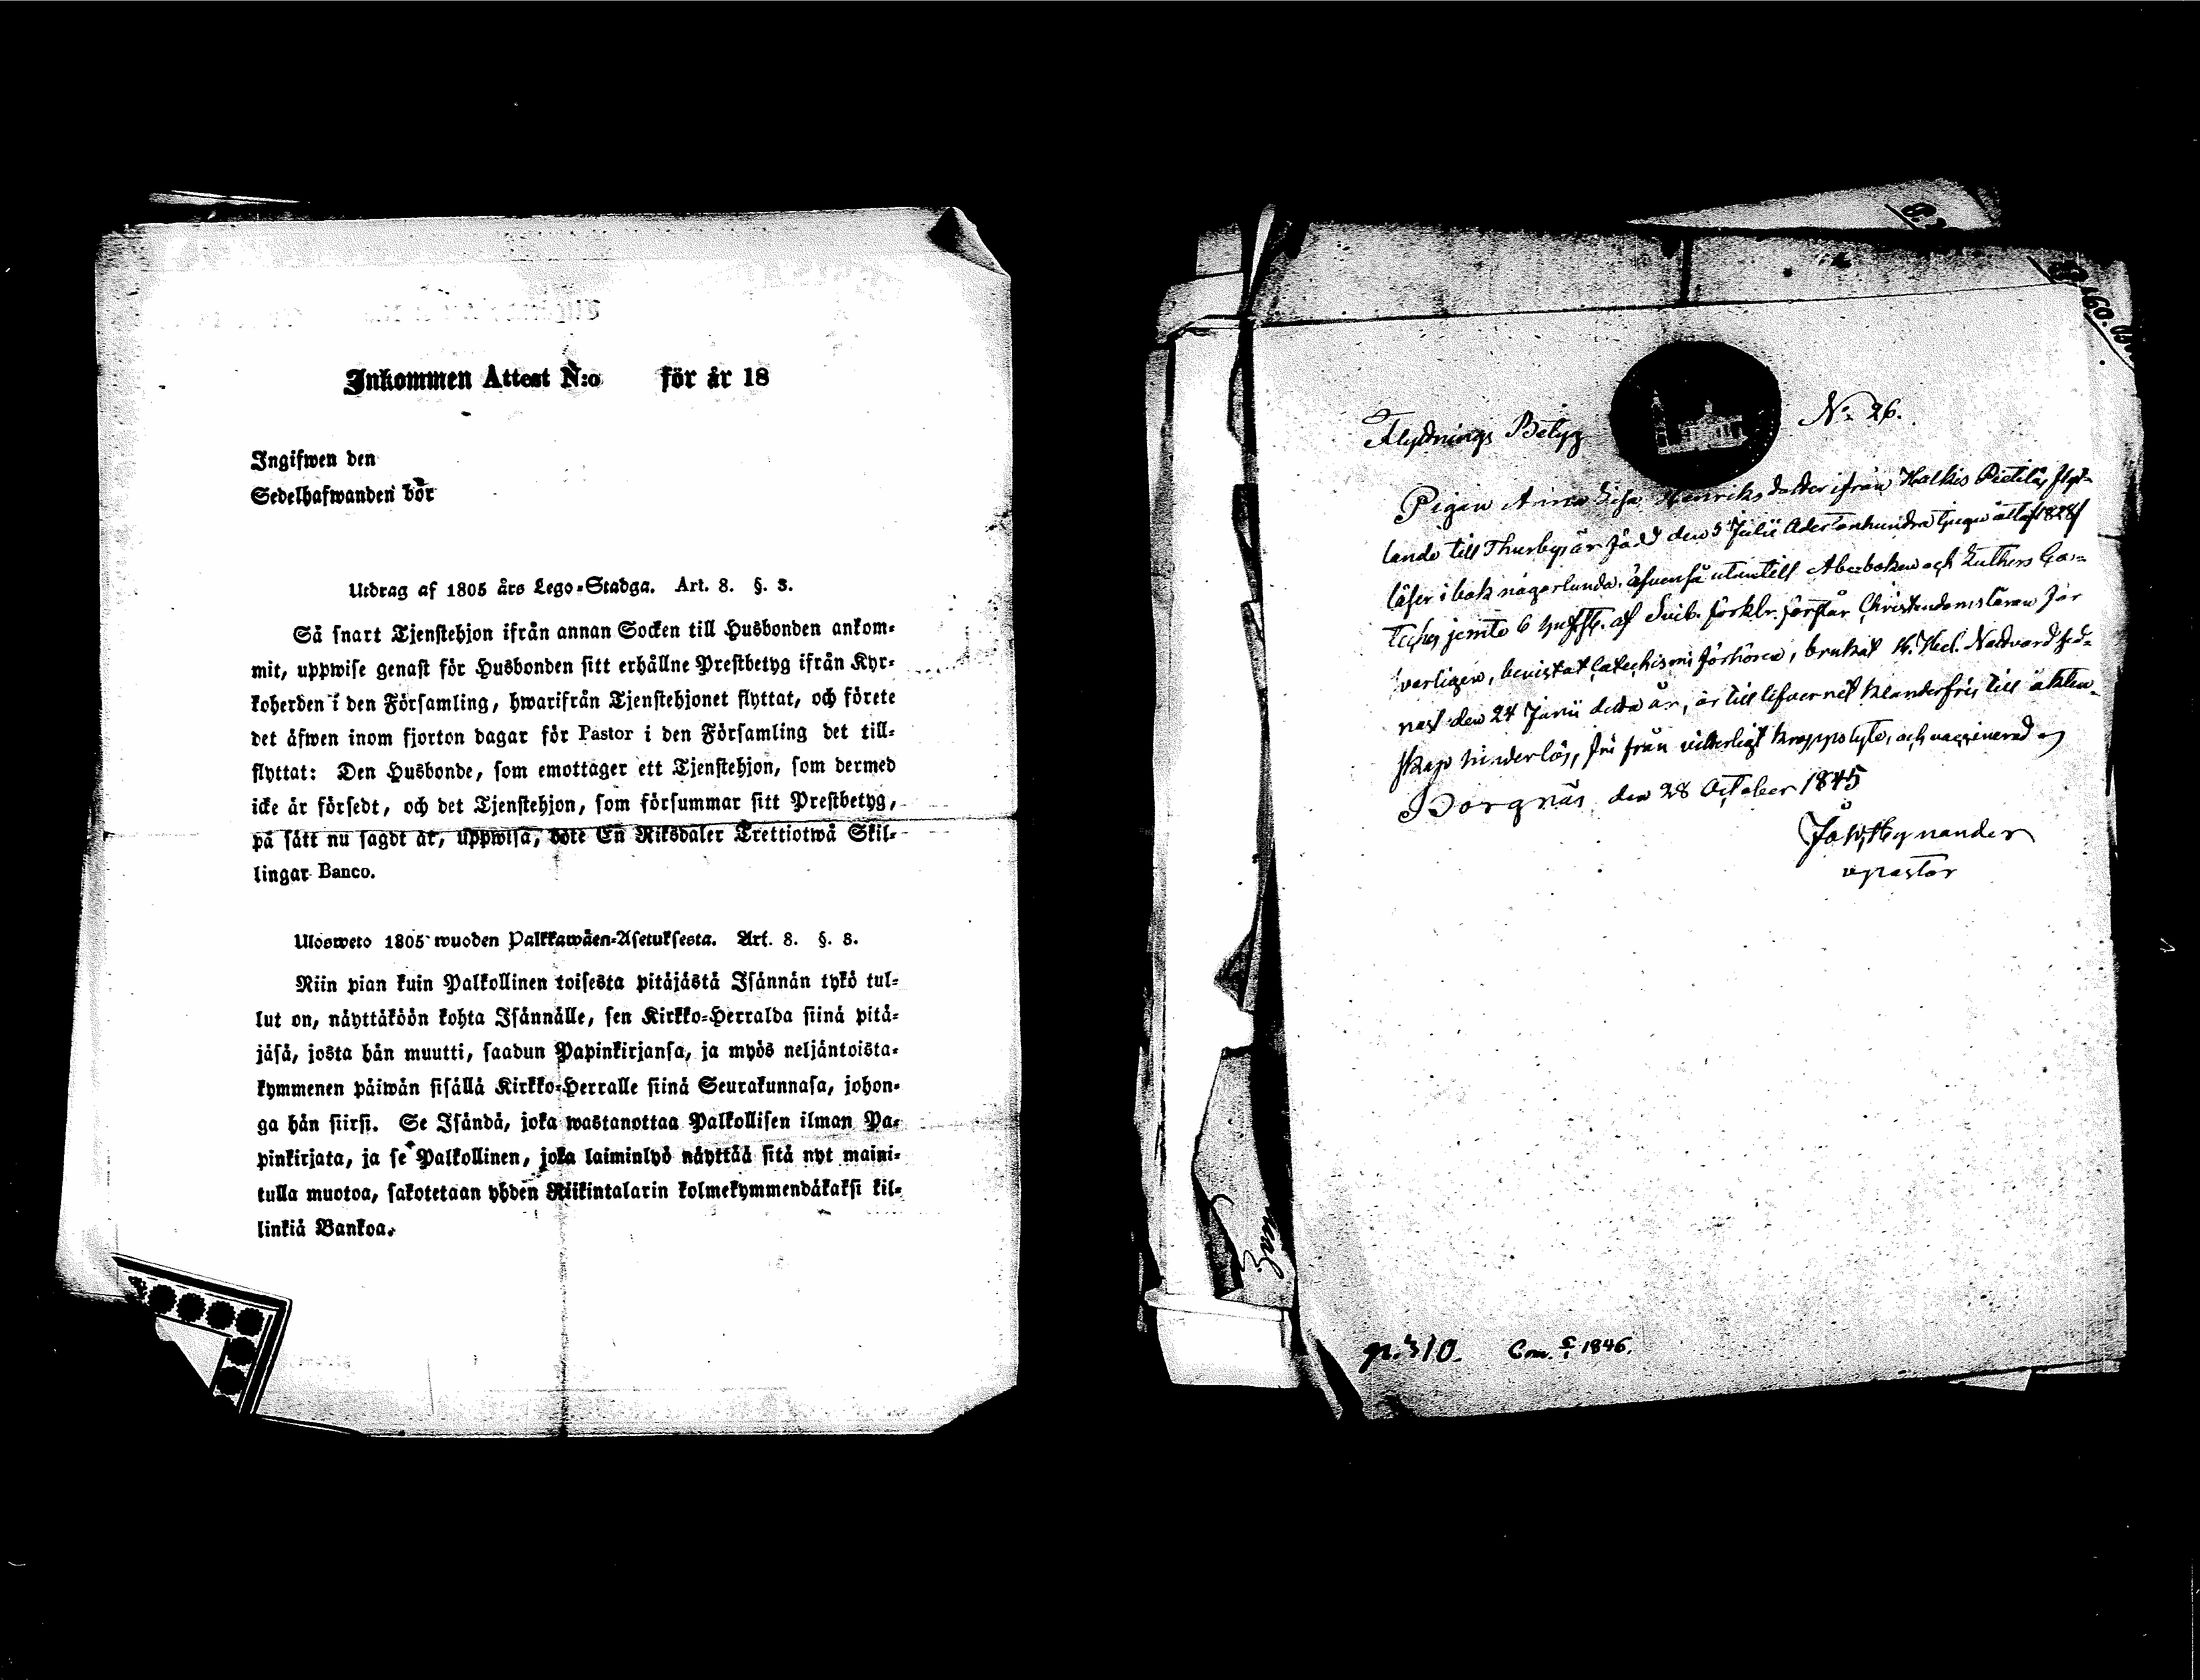 Inkommen Attest N:o för år 18
Ingifwen den
Sedelhafwanden bör
Utdrag af 1805 års Lego-Stadga. Art. 8. §. 3.
Så snart Tjenstehjon ifrån annan Socken till Husbonden ankom-
mit, uppwise genast för Husbonden sitt erhållne Prestbetyg ifrån Kyr-
koherden i den Församling, hwarifrån Tjenstehjonet flyttat, och förete
det äfwen inom fjorton dagar för Pastor i den Församling det till-
flyttat: Den Husbonde, som emottager ett Tjenstehjon, som dermed
icke är försedt, och det Tjenstehjon, som försummar sitt Prestbetyg,
på sätt nu sagdt är, uppwisa, bote En Riksdaler Trettiotwå Skil-
lingar Banco.
Ulosweto 1805 wuoden Palkkawäen-Asetuksesta. Art. 8. §. 8.
Niin pian kuin Palkollinen toisesta pitäjästä Isännän tykö tul-
lut on, näyttäköön kohta Isännälle, sen Kirkko-Herralda siinä pitä-
jäsä, josta hän muutti, saadun Papinkirjansa, ja myös neljäntoista-
kymmenen päiwän sisällä Kirkko-Herralle siinä Seurakunnasa, johon-
ga hän siirsi. Se Isändä, joka wastanottaa Palkollisen ilman Pa-
pinkirjata, ja se Palkollinen, joka laiminlyö näyttää sitä nyt maini-
tulla muotoa, sakotetaan yhden Riikintalarin kolmekymmendäkaksi kil-
linkiä Bankoa.
Flyttnings Betyg N:o 26.
Pigan Anna Lisa Henriks dotter ifrån Halkis Pietilä, flyt-
tande till Thurby, är född den 5 Julii Adertonhundra tjugu åtta /1828/
läser i bok någorlunda, äfvenså utantill Abcboken och Luthers Ca-
teches jemte 6 af Sveb. förklr. förstår Christendomsläran för-
svarligen, bevistat Catechismi förhören, brukat H. Hel. Nattvard sed-
nast den 24 Junii detta år, är till lefvernet klanderfri, till äkten-
skap hinderlös, fri från vitterligt kroppslyte, och vaccinerad
Borgnäs den 28 October 1845
Hynander
v pastor
p. 310. Com. 1846.